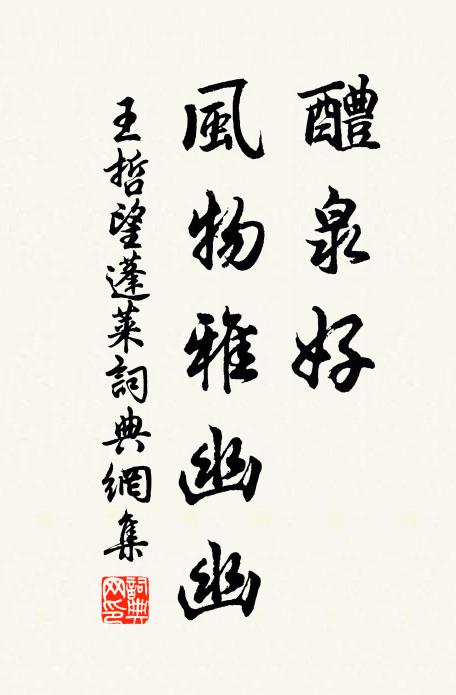 醴泉好
風物雅幽幽
王哲望蓬萊詞典網集
詞典
网印